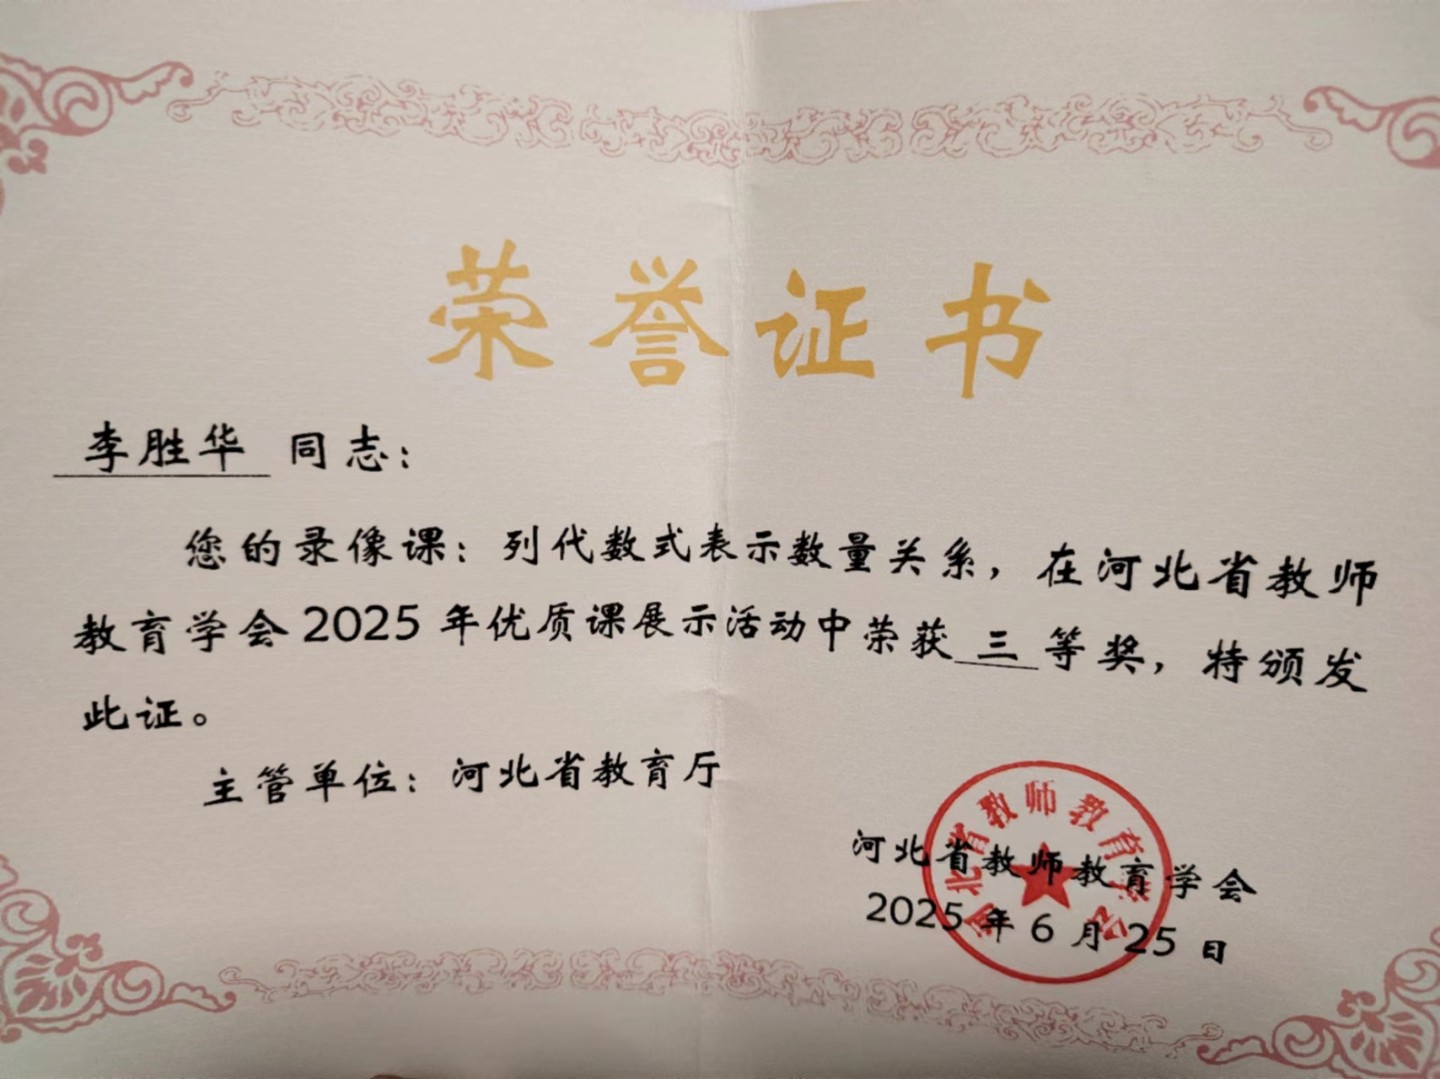 荣誉证书
李胜华 同志：
您的录像课：列代数式表示数量关系，在河北省教师
教育学会2025年优质课展示活动中荣获 三 等奖，特颁发
此证。
主管单位：河北省教育厅
河北省教师教育学会
2025年6月25日
河北省教师教育学会